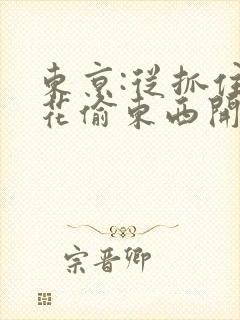 東京:從抓住
花偷東西開
宗晉卿